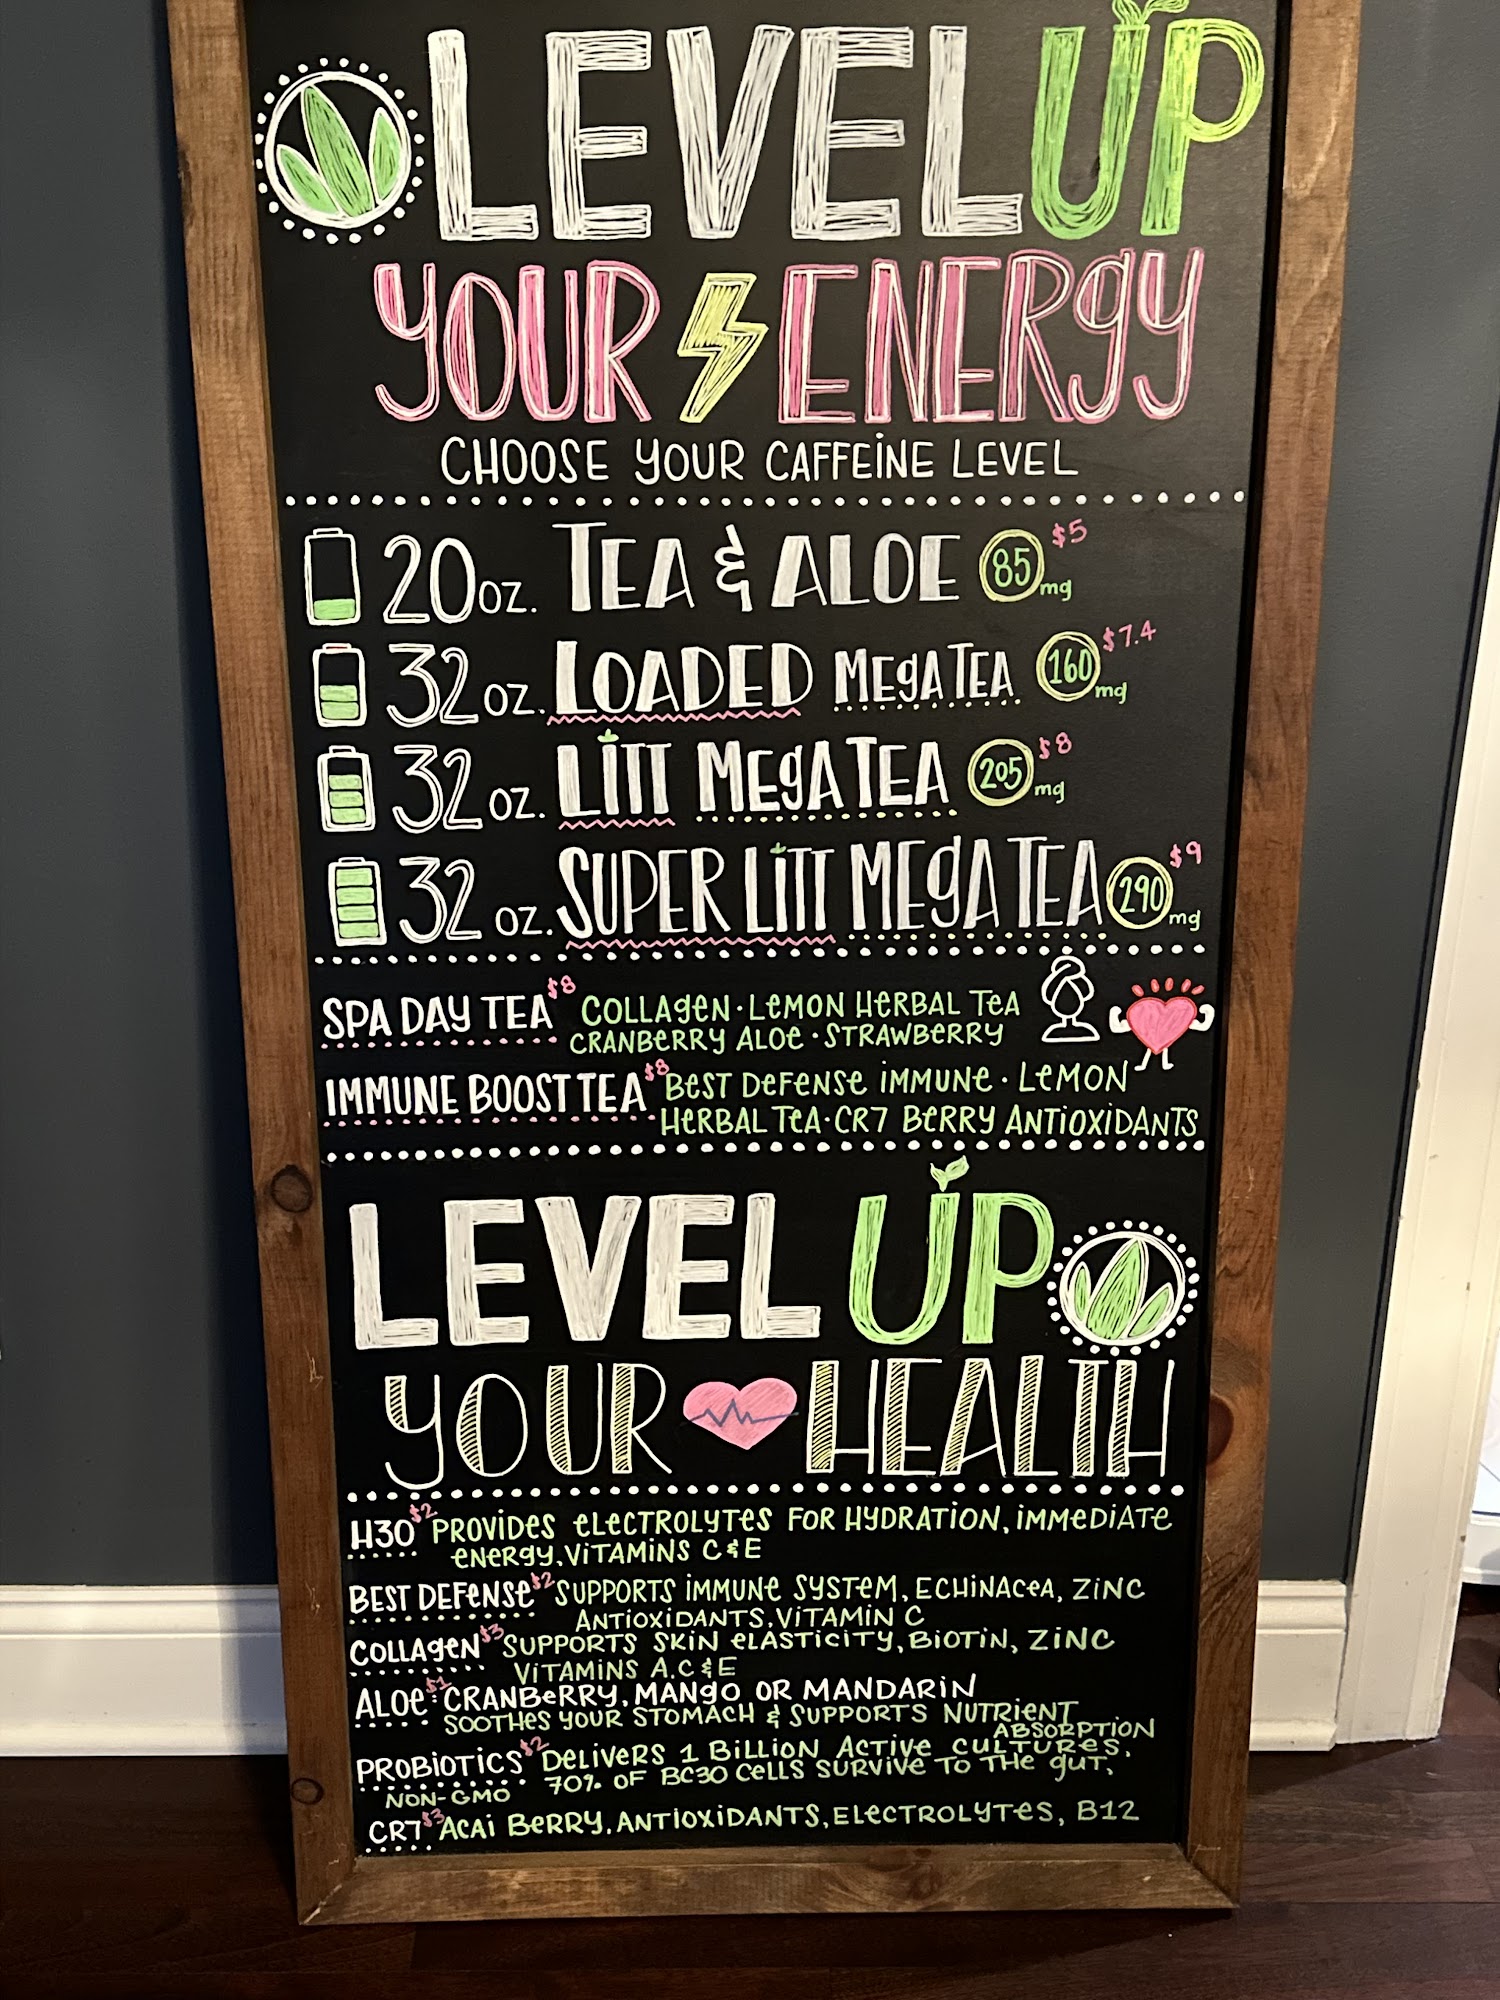 LEVEL UP
YOUR ENERGY
CHOOSE YOUR CAFFEINE LEVEL
20 oz. TEA & ALOE 85 mg $5
32 oz. LOADED MEGA TEA 160 mg $7.4
32 oz. LITT MEGA TEA 205 mg $8
32 oz. SUPER LITT MEGA TEA 290 mg $9
SPA DAY TEA $8 COLLAGEN · LEMON HERBAL TEA
CRANBERRY ALOE · STRAWBERRY
IMMUNE BOOST TEA $8 BEST DEFENSE IMMUNE · LEMON
HERBAL TEA · CR7 BERRY ANTIOXIDANTS
LEVEL UP
YOUR HEALTH
H30 $2 PROVIDES ELECTROLYTES FOR HYDRATION, IMMEDIATE
ENERGY, VITAMINS C & E
BEST DEFENSE $2 SUPPORTS IMMUNE SYSTEM, ECHINACEA, ZINC
ANTIOXIDANTS, VITAMIN C
COLLAGEN $3 SUPPORTS SKIN ELASTICITY, BIOTIN, ZINC
VITAMINS A.C & E
ALOE: $1 CRANBERRY, MANGO OR MANDARIN
SOOTHES YOUR STOMACH & SUPPORTS NUTRIENT
ABSORPTION
PROBIOTICS $2 DELIVERS 1 BILLION ACTIVE CULTURES,
70% OF BC30 CELLS SURVIVE TO THE GUT,
NON-GMO
CR7 $3 ACAI BERRY, ANTIOXIDANTS, ELECTROLYTES, B12